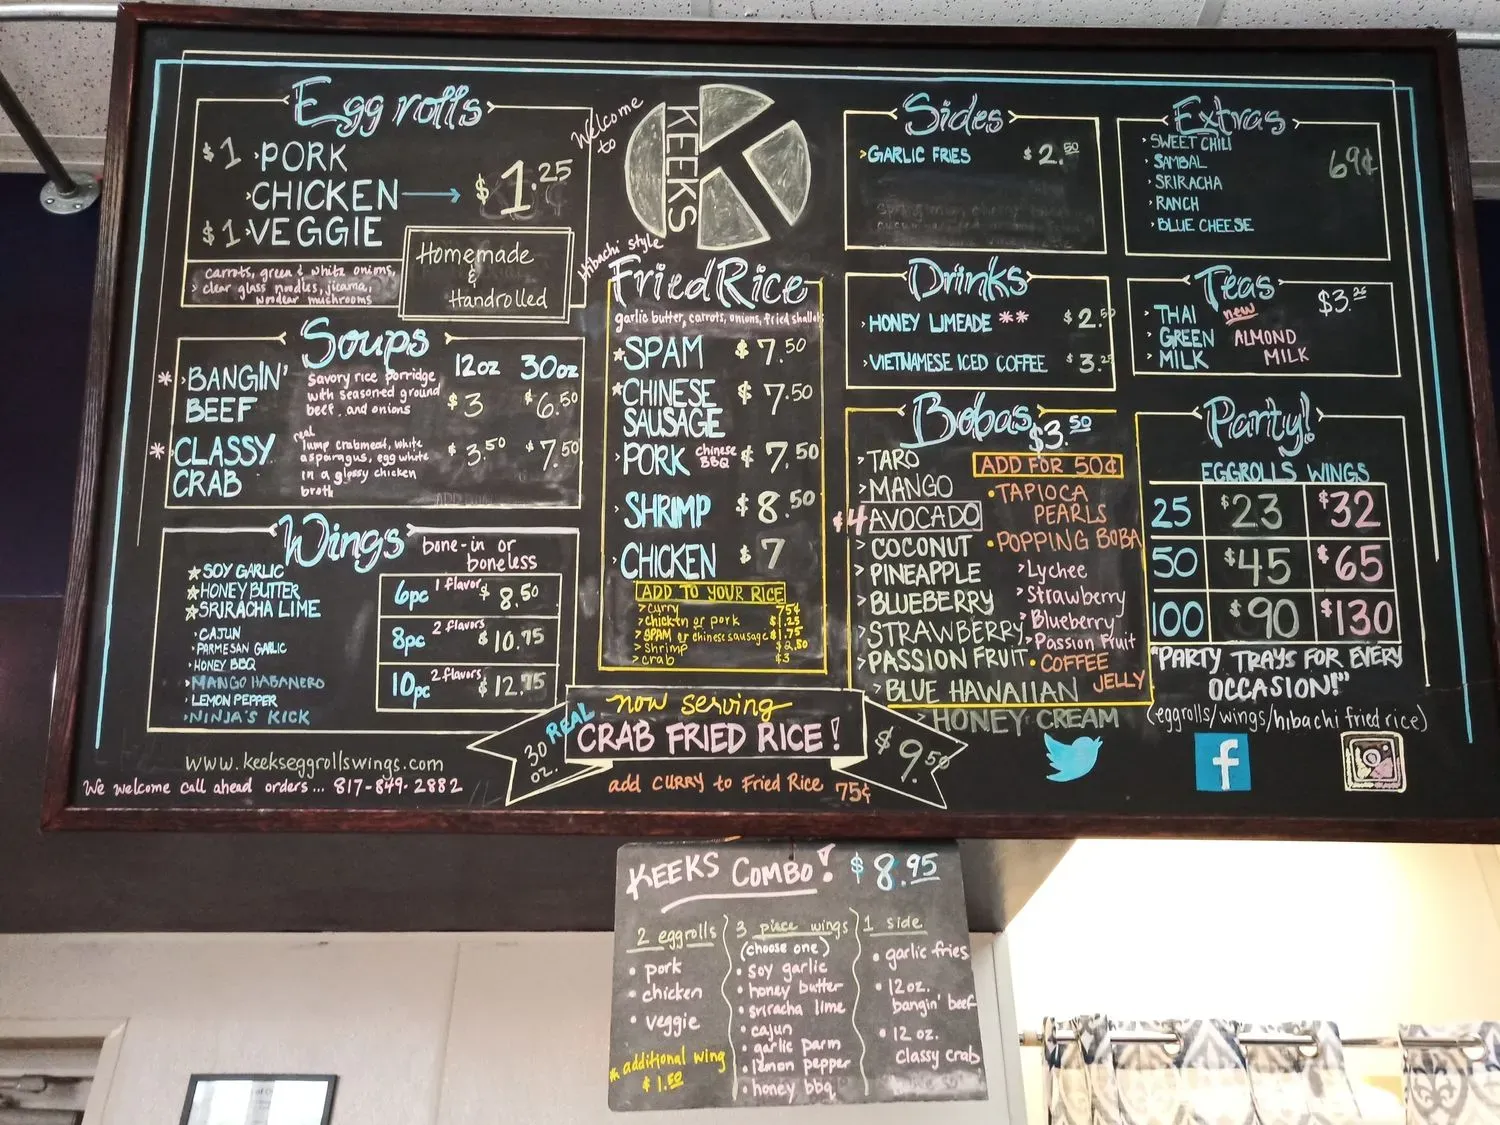 Egg rolls
$1 PORK
CHICKEN → $1.25
$1 VEGGIE
carrots, green & white onions,
clear glass noodles, jicama,
woodear mushrooms
Homemade
&
Handrolled
Soups
12oz 30oz
* BANGIN' BEEF
Savory rice porridge
with seasoned ground
beef, and onions
$3 $6.50
* CLASSY CRAB
real
lump crabmeat, white
asparagus, egg white
in a glossy chicken
broth
$3.50 $7.50
Wings
bone-in or
boneless
SOY GARLIC
HONEY BUTTER
SRIRACHA LIME
CAJUN
PARMESAN GARLIC
HONEY BBQ
MANGO HABANERO
LEMON PEPPER
NINJA'S KICK
6pc 1 flavor $8.50
8pc 2 flavors $10.75
10pc 2 flavors $12.75
www.keekseggrollswings.com
We welcome call ahead orders... 817-849-2882
Welcome
to
KEEKS
K
Hibachi style
Fried Rice
garlic butter, carrots, onions, fried shallots
SPAM $7.50
CHINESE
SAUSAGE $7.50
PORK chinese BBQ $7.50
SHRIMP $8.50
CHICKEN $7
ADD TO YOUR RICE
curry 75¢
chicken or pork $1.25
SPAM or chinese sausage $1.75
shrimp $2.50
crab $3
now serving
30 oz. REAL CRAB FRIED RICE! $9.50
add CURRY to Fried Rice 75¢
Sides
GARLIC FRIES $2.50
Extras
SWEET CHILI 69¢
SAMBAL
SRIRACHA
RANCH
BLUE CHEESE
Drinks
HONEY LIMEADE ** $2.50
VIETNAMESE ICED COFFEE $3.25
Teas
$3.25
THAI
GREEN
MILK
new
ALMOND
MILK
Bobas $3.50
TARO
MANGO
$4 AVOCADO
COCONUT
PINEAPPLE
BLUEBERRY
STRAWBERRY
PASSION FRUIT
BLUE HAWAIIAN
HONEY CREAM
ADD FOR 50¢
TAPIOCA
PEARLS
POPPING BOBA
Lychee
Strawberry
Blueberry
Passion Fruit
COFFEE
JELLY
Party!
EGGROLLS WINGS
25 $23 $32
50 $45 $65
100 $90 $130
"PARTY TRAYS FOR EVERY
OCCASION!"
(eggrolls/wings/hibachi fried rice)
f
KEEKS COMBO! $8.95
2 eggrolls
• pork
• chicken
• veggie
* additional wing
$1.50
3 piece wings
(choose one)
• soy garlic
• honey butter
• sriracha lime
• cajun
• garlic parm
• lemon pepper
• honey bbq
1 side
• garlic fries
• 12 oz.
bangin' beef
• 12 oz.
classy crab